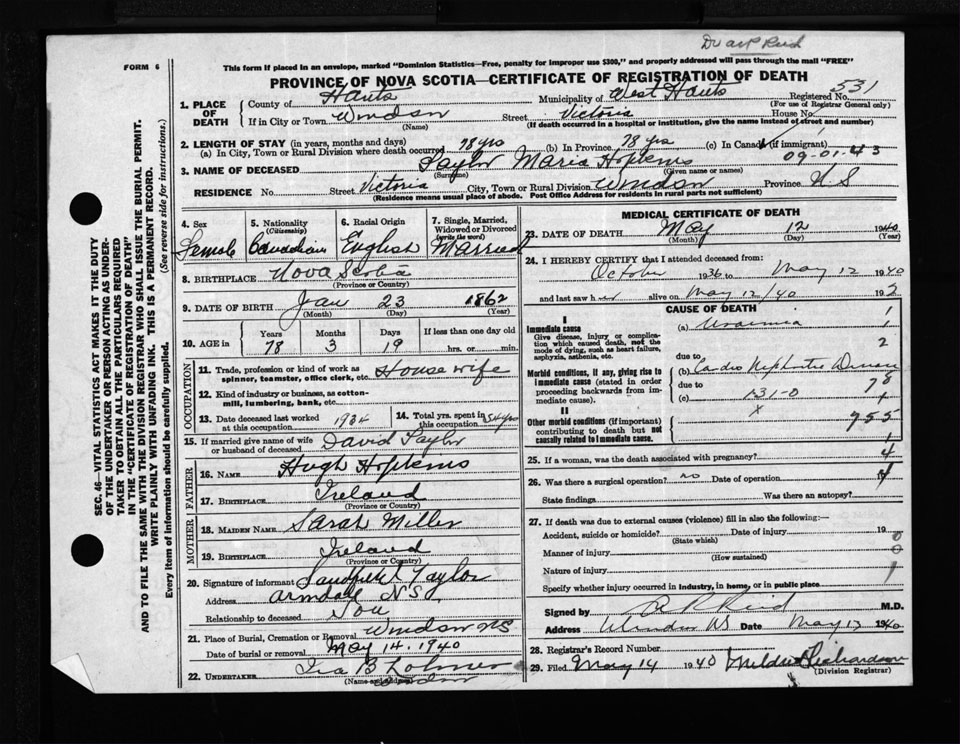 Dr a R Reid
FORM 6
This form if placed in an envelope, marked "Dominion Statistics—Free, penalty for improper use $300," and properly addressed will pass through the mail "FREE"
PROVINCE OF NOVA SCOTIA—CERTIFICATE OF REGISTRATION OF DEATH
531
1. PLACE OF DEATH
County of Hants Municipality of West Hants Registered No.
(For use of Registrar General only)
If in City or Town Windsor Street Victoria House No.
(Name) (If death occurred in a hospital or institution, give the name instead of street and number)
2. LENGTH OF STAY (in years, months and days)
(a) In City, Town or Rural Division where death occurred 78 yrs (b) In Province 78 yrs (c) In Canada (if immigrant)
09-01-43
3. NAME OF DECEASED Taylor Maria Hopkins
(Surname) (Given name or names)
RESIDENCE No. Street Victoria City, Town or Rural Division Windsor Province N S
(Residence means usual place of abode. Post Office Address for residents in rural parts not sufficient)
SEC. 46—VITAL STATISTICS ACT MAKES IT THE DUTY
OF THE UNDERTAKER OR PERSON ACTING AS UNDER-
TAKER TO OBTAIN ALL THE PARTICULARS REQUIRED
IN THE "CERTIFICATE OF REGISTRATION OF DEATH"
AND TO FILE THE SAME WITH THE DIVISION REGISTRAR WHO SHALL ISSUE THE BURIAL PERMIT.
WRITE PLAINLY WITH UNFADING INK. THIS IS A PERMANENT RECORD.
Every item of information should be carefully supplied. (See reverse side for instructions.)
4. Sex
Female
5. Nationality
(Citizenship)
Canadian
6. Racial Origin
English
7. Single, Married,
Widowed or Divorced
(write the word)
Married
8. BIRTHPLACE Nova Scotia
(Province or Country)
9. DATE OF BIRTH Jan 23 1862
(Month) (Day) (Year)
10. AGE in
Years Months Days If less than one day old
78 3 19 hrs. or min.
OCCUPATION
11. Trade, profession or kind of work as
spinner, teamster, office clerk, etc. House wife
12. Kind of industry or business, as cotton-
mill, lumbering, bank, etc.
13. Date deceased last worked
at this occupation 1934
14. Total yrs. spent in
this occupation 54 yrs
15. If married give name of wife
or husband of deceased David Taylor
FATHER
16. NAME Hugh Hopkins
17. BIRTHPLACE Ireland
(Province or Country)
MOTHER
18. MAIDEN NAME Sarah Miller
19. BIRTHPLACE Ireland
(Province or Country)
20. Signature of informant Taylor
Address Armdale N S
Relationship to deceased Son
21. Place of Burial, Cremation or Removal Windsor NS
Date of burial or removal May 14. 1940
22. UNDERTAKER Ira B
(Name and Address)
Windsor
MEDICAL CERTIFICATE OF DEATH
23. DATE OF DEATH May 12 1940
(Month) (Day) (Year)
24. I HEREBY CERTIFY that I attended deceased from:
October 1936 to May 12 1940
and last saw her alive on May 12/40 19
CAUSE OF DEATH
I
Immediate cause
Give disease, injury or complica-
tion which caused death, not the
mode of dying, such as heart failure,
asphyxia, asthenia, etc.
(a) Uraemia
due to
Morbid conditions, if any, giving rise to
immediate cause (stated in order
proceeding backwards from im-
mediate cause).
(b) Cardio Nephritic Disease
due to
(c) 131-0
x
II
Other morbid conditions (if important)
contributing to death but not
causally related to immediate cause.
955
25. If a woman, was the death associated with pregnancy?
26. Was there a surgical operation? no Date of operation
State findings Was there an autopsy?
27. If death was due to external causes (violence) fill in also the following:—
Accident, suicide or homicide? Date of injury 19
(State which)
Manner of injury
(How sustained)
Nature of injury
Specify whether injury occurred in industry, in home, or in public place
Signed by a R Reid M.D.
Address Windsor NS Date May 13 1940
28. Registrar's Record Number
29. Filed May 14 1940 Mildred Richardson
(Division Registrar)